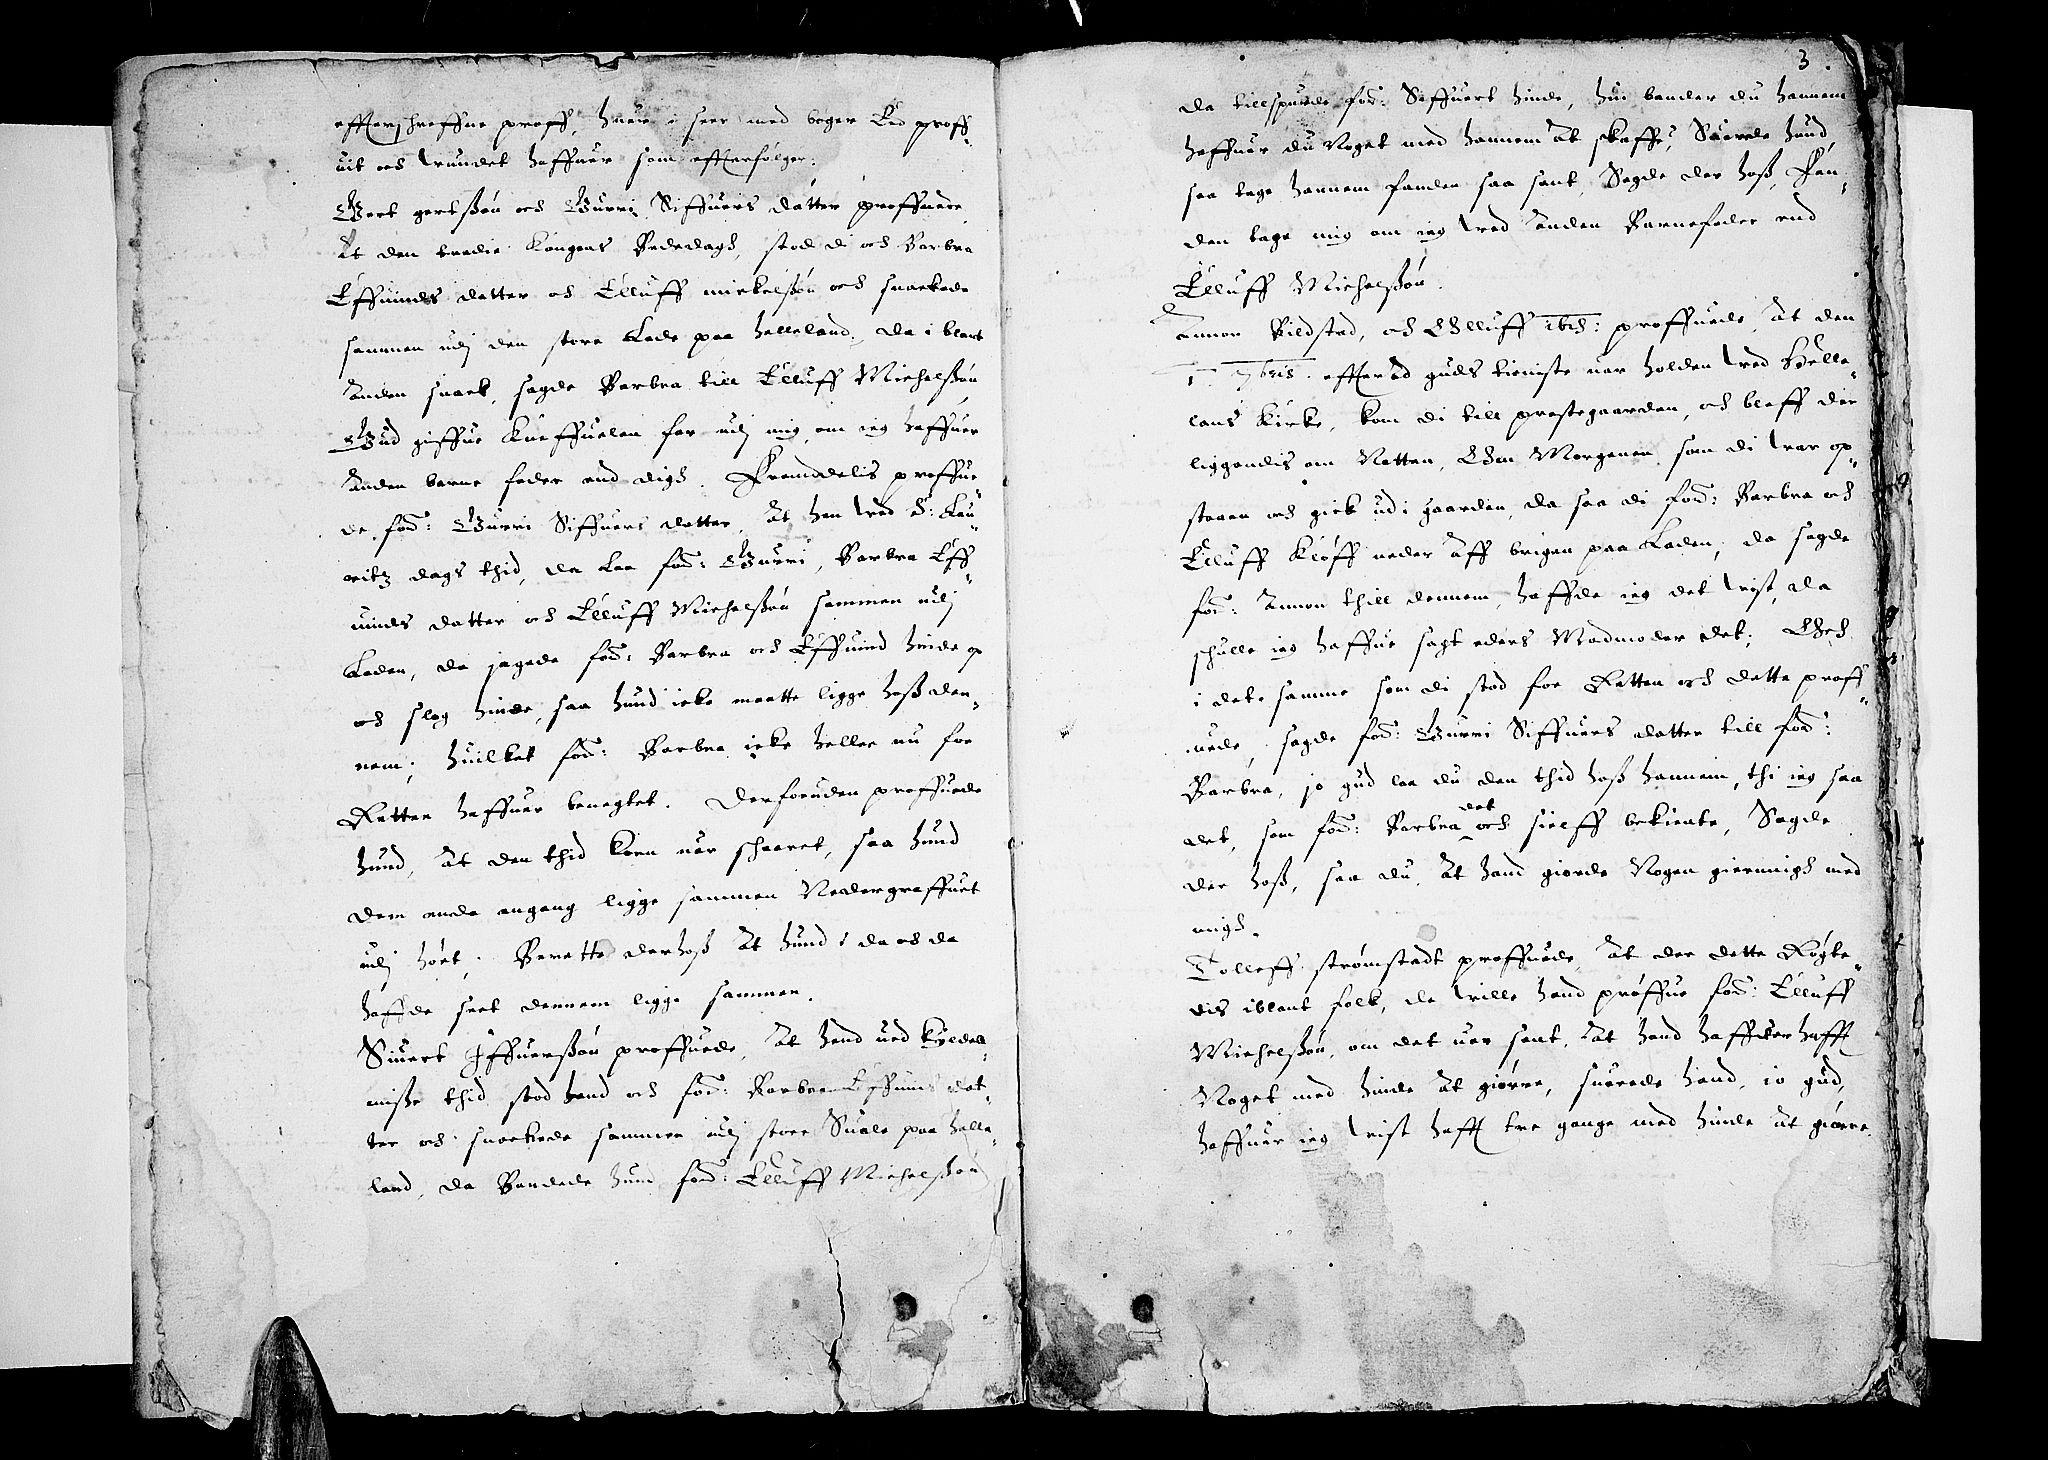 effterschreffne proff, huer i seer med boger Eed proff„
uit och wundet haffuer som effterfølger.
Gert gertßøn och Gurri Siffuers dátter proffuede
At den tredie kongens Bededagh, stod di och Barbra
Effuinds datter och Elluff mickelßøn och snackede
sammen udj den store Lade paa helleland, da i blant
Anden snack, sagde Barbra till Elluff Michelßøn
Gud giffue Kneffuelen far udj mig om ieg haffuer
Anden barne fader end digh. Fremdelis proffue„
de for̄: Gurri Siffuers datter, At hen wed S: Lau„
ritz dags thid, da laa for̄: Gurri, Barbra Eff„
uinds datter och Elluff Michelßøn sammen udj
Laden, da jagede for̄: Barbra och Effuind hinde op
och slog hinde, saa hund icke maatte ligge hoß den„
nem; huilket for̄: Barbra icke heller nu for
Retten haffuer benegtet. Derforuden proffuede
hund, At den thid korn uar schaaret, saa hund
dem ende engang ligge sammen Nedergraffuet
udj høet; Berette derhoß At hund i da och da
haffde seet dennem ligge sammen.
Siuert Iffuerßøn proffuede, At hand ued kyndell„
miße thid stod hand och for̄: Barbra Effuins dat„
ter och snackede sammen udj store Suale paa helle„
land, da Bandede hund for̄: Elluff Michelßøn
3.
da tillspurde for̄: Siffuert hinde, hui bander du hannem
haffuer du Noget med hannem At skaffe? Suarede hund,
saa tage hannem fanden saa sant, Sagde der hoß, Fan„
den tage mig om ieg wed Anden Barnefader end
Elluff Michelßøn.
Annon Kildstad, och Elluff ibid: proffuede At den
1. 7bris. effter Ad guds tieniste uar holden wed Helle„
lans kirke, kom di till prestegaarden, och bleff der
liggendis om Natten, Om Morgenen som di war op„
staaen och gick ud i gaarden, da saa di for̄: Barbra och
Elluff kløff neder Aff brigen paa Laden, da sagde
for̄: Annon thill dennem, haffde ieg det wist, da
schulle ieg haffue sagt eders Madmoder det; Och
i det samme som di stod for Retten och dette proff„
uede, sagde for̄: Gurri Siffuers datter till for̄:
Barbra, jo gud laa du den thid hoß hannem, thi ieg saa
det, som for̄: Barbra det och sielff bekiente, Sagde
der hoß, saa du, At hand giorde Nogen gierningh med
migh.
Tolleff strømstadt proffuede, At der dette Røgte„
dis iblant folk, da wille hand prøffue for̄: Elluff
Michelßøn, om det uar sant, At hand haffuer hafft
Noget med hinde At giørre, suarede hand, io gud,
haffuer ieg wist hafft tre gange med hinde At giørre.